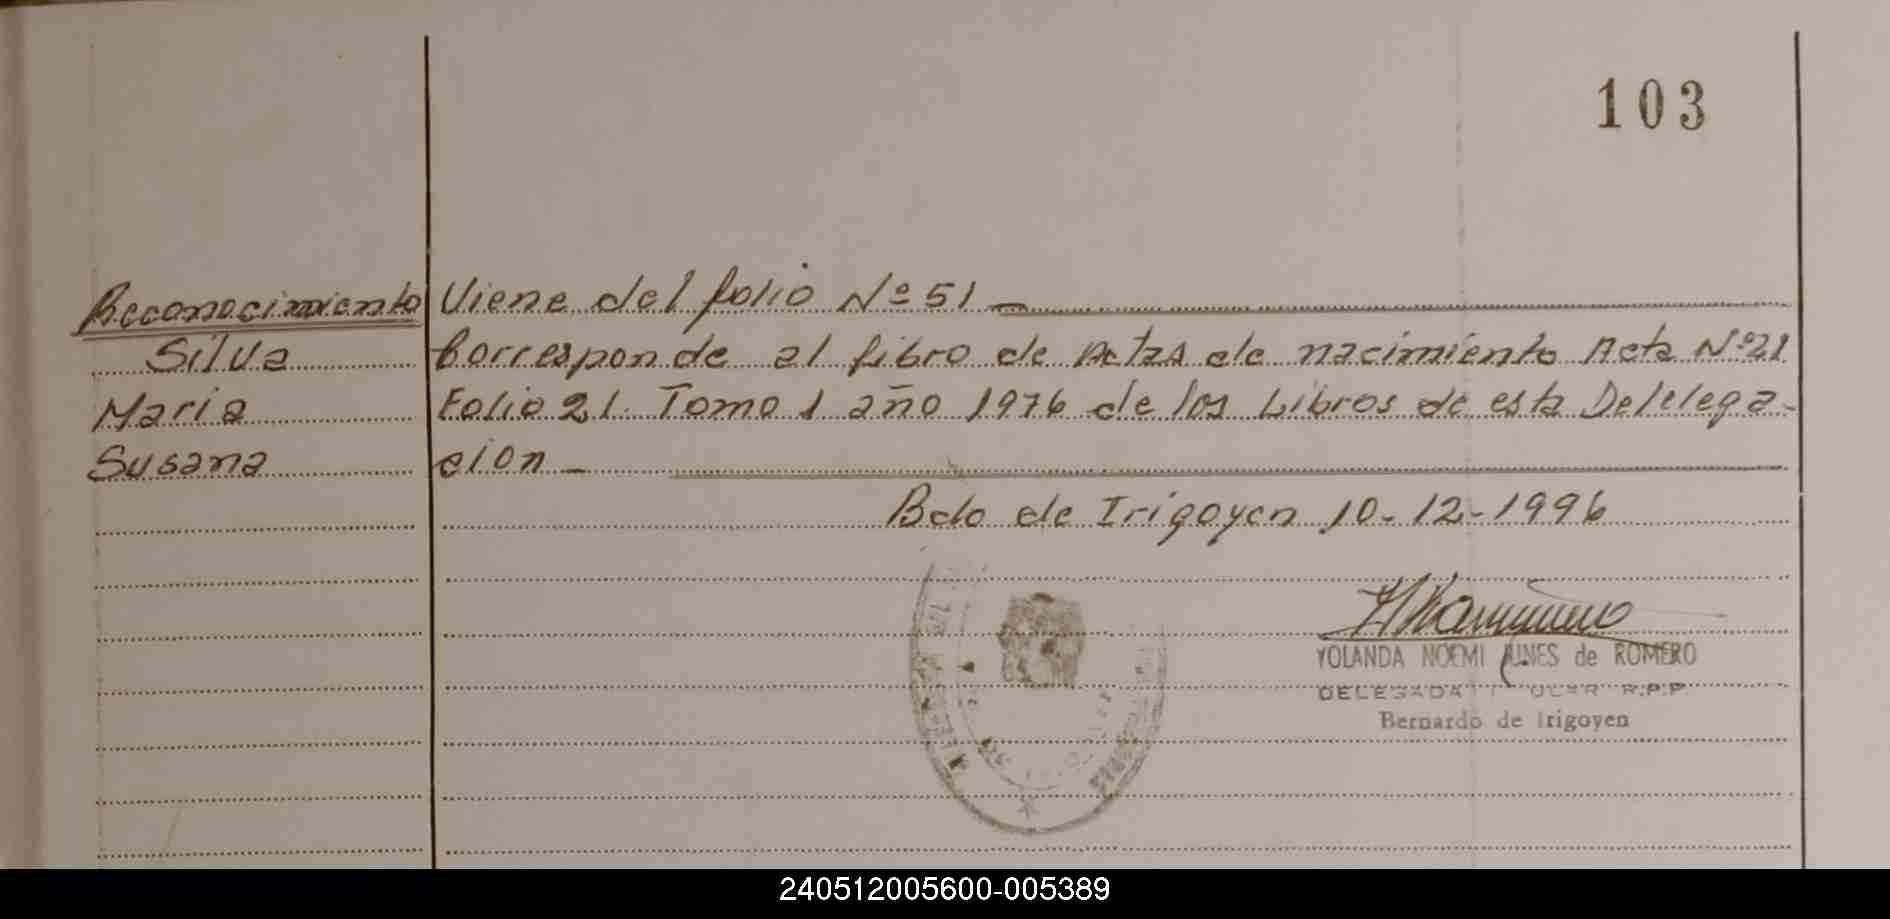 103
Reconocimiento Viene del folio Nº 51
Silva Corresponde al libro de Actas de nacimiento Acta Nº 21
Maria Folio 21. Tomo 1 año 1976 de los Libros de esta Delelega-
Susana cion
Bdo de Irigoyen 10-12-1996
YOLANDA NOEMI de ROMERO
DELEGADA R.P.P.
Bernardo de Irigoyen
240512005600-005389